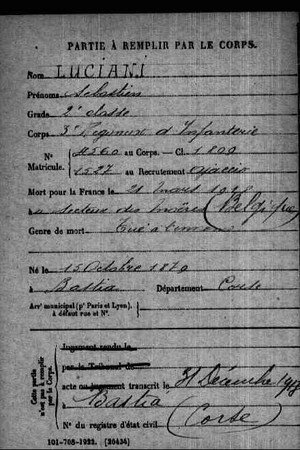 PARTIE À REMPLIR PAR LE CORPS.
Nom LUCIANI
Prénoms Sebastien
Grade 2e classe
Corps 3e Regiment d'Infanterie
N° 11560 au Corps. — Cl. 1899
Matricule. 1527 au Recrutement Ajaccio
Mort pour la France le 21 mars 1918
a secteur des (Belgique)
Genre de mort Tué à l'ennemi
Né le 15 Octobre 1879
à Bastia Département Corse
Arrt municipal (pr Paris et Lyon), à défaut rue et N°.
Cette partie n'est pas à remplir par le Corps.
Jugement rendu le
par le Tribunal de
acte ou jugement transcrit le 31 Décembre 1918
à Bastia
N° du registre d'état civil (Corse)
101-708-1922. [26434]